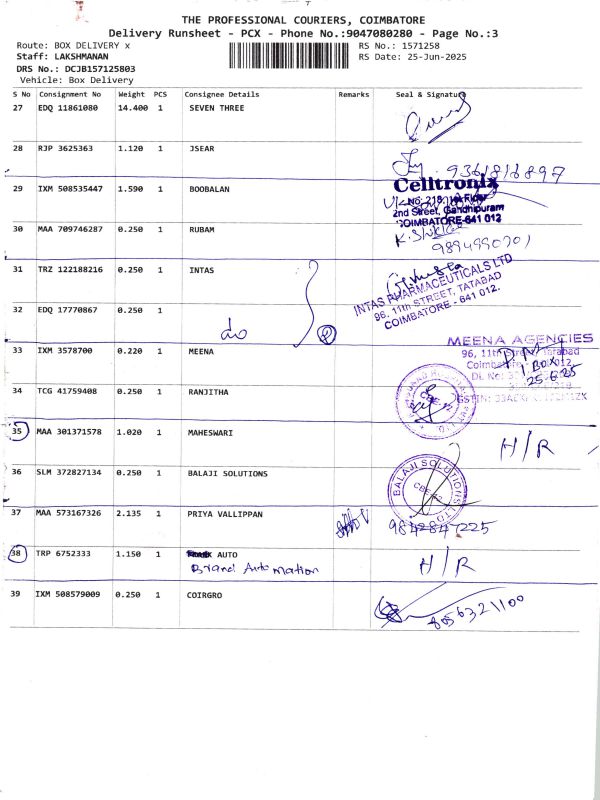 THE PROFESSIONAL COURIERS, COIMBATORE
Delivery Runsheet - PCX - Phone No.:9047080280 - Page No.:3
Route: BOX DELIVERY x
RS No.: 1571258
Staff: LAKSHMANAN
RS Date: 25-Jun-2025
DRS No.: DCJB157125803
Vehicle: Box Delivery
S No Consignment No Weight PCS Consignee Details Remarks Seal & Signature
27 EDQ 11861080 14.400 1 SEVEN THREE
28 RJP 3625363 1.120 1 JSEAR
9361816897
29 IXM 508535447 1.590 1 BOOBALAN
Celltronix
No: 218, 1st Floor
2nd Street, Gandhipuram
COIMBATORE-641 012
30 MAA 709746287 0.250 1 RUBAM
9894990701
31 TRZ 122188216 0.250 1 INTAS
INTAS PHARMACEUTICALS LTD
96, 11th STREET, TATABAD
COIMBATORE - 641 012.
32 EDQ 17770867 0.250 1
33 IXM 3578700 0.220 1 MEENA
MEENA AGENCIES
96, 11th Street, Tatabad
1 BOX
25.6.25
34 TCG 41759408 0.250 1 RANJITHA
35 MAA 301371578 1.020 1 MAHESWARI
H/R
36 SLM 372827134 0.250 1 BALAJI SOLUTIONS
BALAJI SOLUTIONS LTD
CBE-12
37 MAA 573167326 2.135 1 PRIYA VALLIPPAN
9842847225
38 TRP 6752333 1.150 1 AUTO
Brand Automation
H/R
39 IXM 508579009 0.250 1 COIRGRO
8056321100